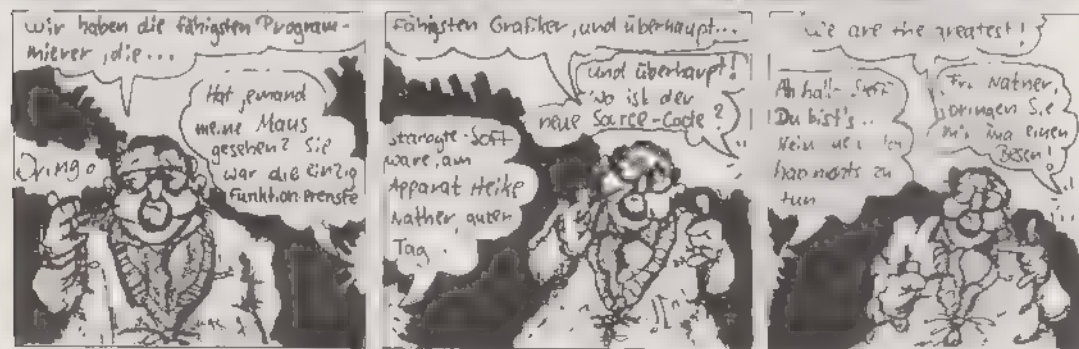 Wir haben die fähigsten Program-
mierer, die...
Hat jemand
meine Maus
gesehen? Sie
war die einzig
Funktionierenste
Fähigsten Grafiker, und überhaupt...
Und überhaupt!
Wo ist der
neue Source-Code?
Soft
ware, am
Apparat Heike
Nather, guten
Tag.
We are the greatest!
Du bist's..
Nein
zu
tun
Fr. Natner,
bringen Sie
einen
Besen!